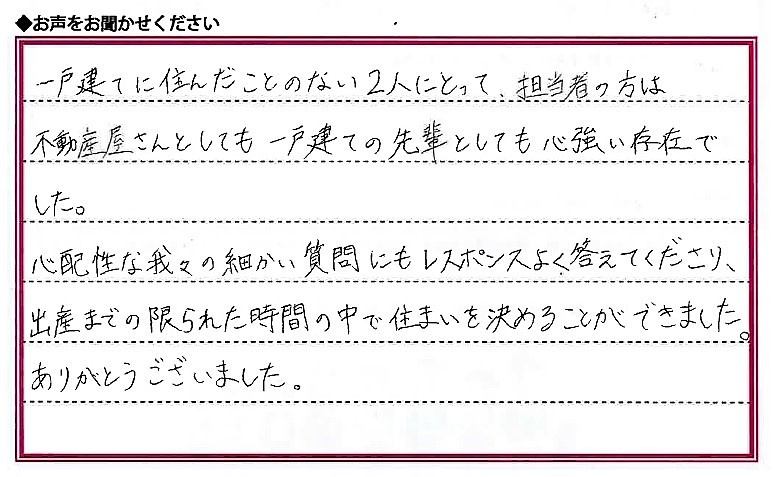 ◆お声をお聞かせください
一戸建てに住んだことのない2人にとって、担当者の方は
不動産屋さんとしても一戸建ての先輩としても心強い存在で
した。
心配性な我々の細かい質問にもレスポンスよく答えてくださり、
出産までの限られた時間の中で住まいを決めることができました。
ありがとうございました。